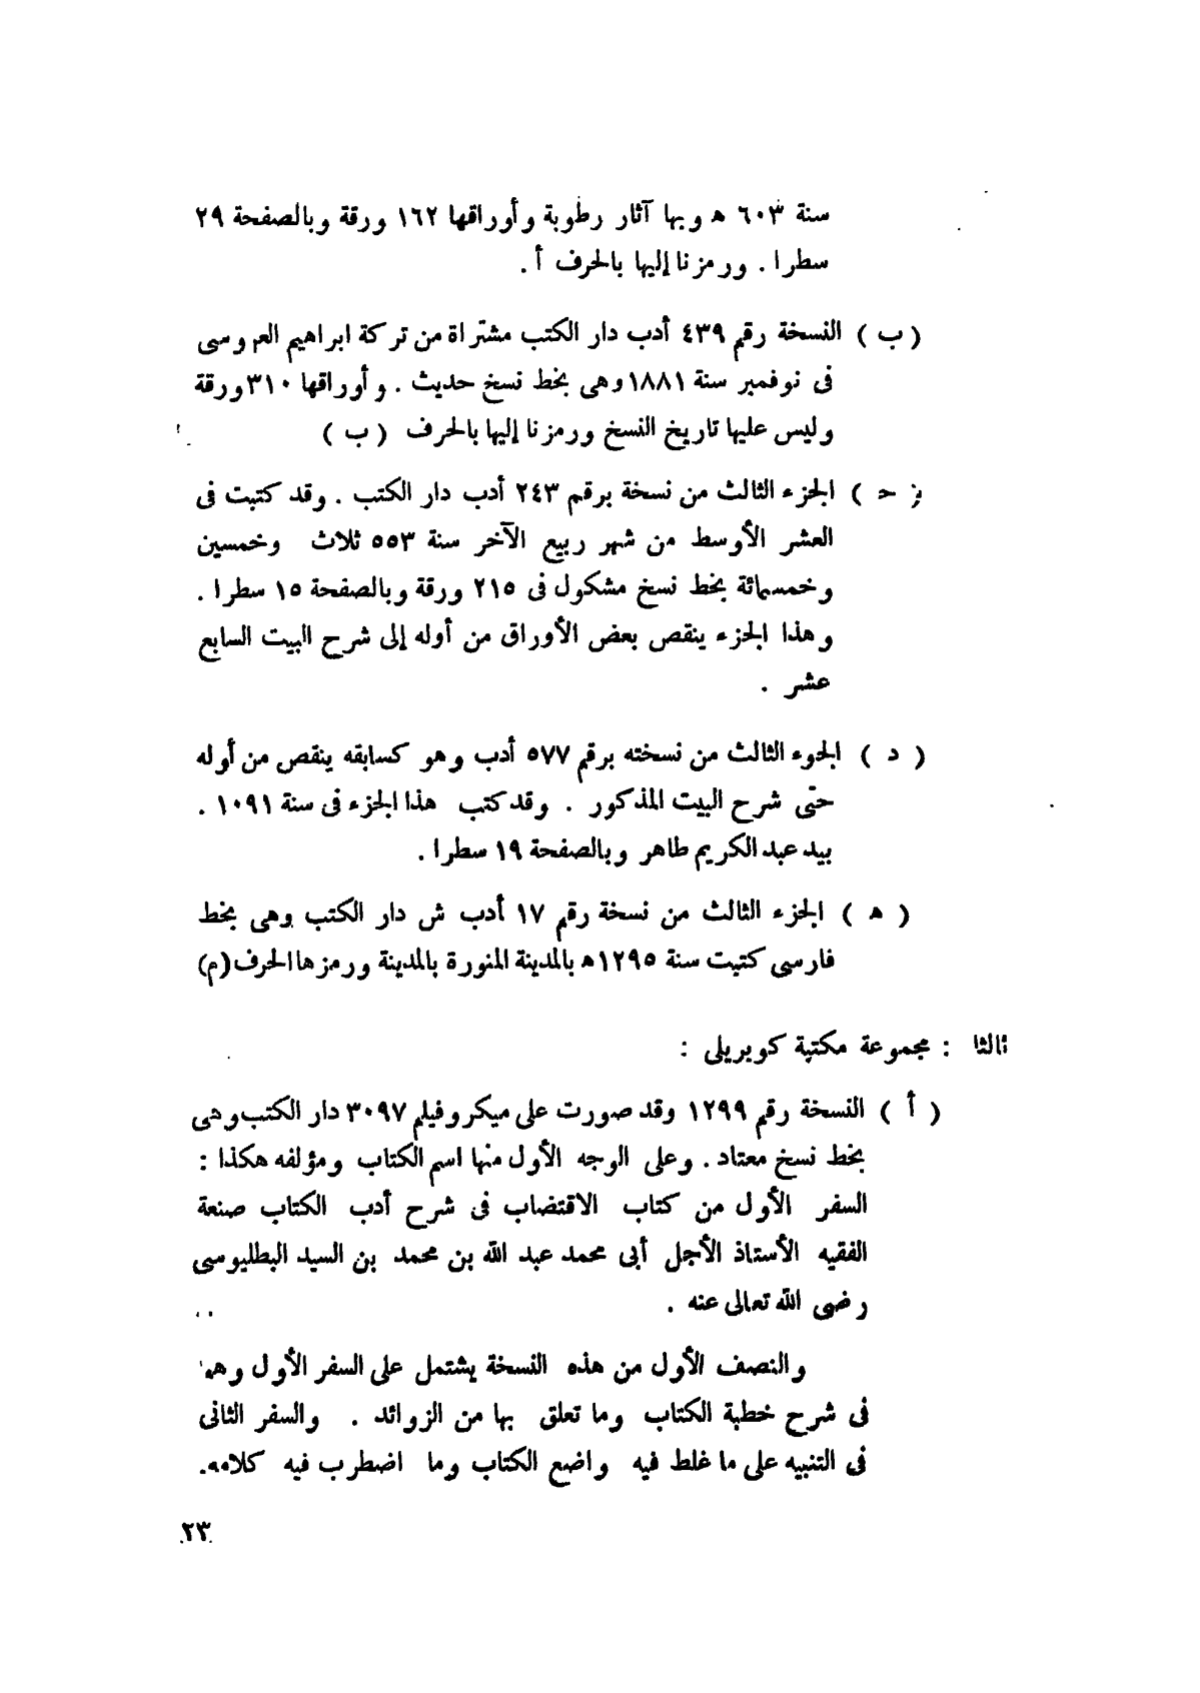 سنة ٦٠٣ ه وبها آثار رطوبة وأوراقها ١٦٢ ورقة وبالصفحة ٢٩
سطرا . ورمزنا إليها بالحرف أ .
( ب ) النسخة رقم ٤٣٩ أدب دار الكتب مشتراة من تركة ابراهيم العروسى
فى نوفمبر سنة ١٨٨١ وهى بخط نسخ حديث . وأوراقها ٣١٠ ورقة
وليس عليها تاريخ النسخ ورمزنا إليها بالحرف ( ب )
( ح ) الجزء الثالث من نسخة برقم ٢٤٣ أدب دار الكتب . وقد كتبت فى
العشر الأوسط من شهر ربيع الآخر سنة ٥٥٣ ثلاث وخمسين
وخمسمائة بخط نسخ مشكول فى ٢١٥ ورقة وبالصفحة ١٥ سطرا .
وهذا الجزء ينقص بعض الأوراق من أوله إلى شرح البيت السابع
عشر .
( د ) الجوء الثالث من نسخته برقم ٥٧٧ أدب وهو كسابقه ينقص من أوله
حتّى شرح البيت المذكور . وقد كتب هذا الجزء فى سنة ١٠٩١ .
بيد عبد الكريم طاهر وبالصفحة ١٩ سطرا .
( ه ) الجزء الثالث من نسخة رقم ١٧ أدب ش دار الكتب وهى بخط
فارسى كتبت سنة ١٢٩٥ه بالمدينة المنورة بالمدينة ورمزها الحرف (م)
ثالثا : مجموعة مكتبة كوبريلى :
( أ ) النسخة رقم ١٢٩٩ وقد صورت على ميكروفيلم ٣٠٩٧ دار الكتب وهى
بخط نسخ معتاد . وعلى الوجه الأول منها اسم الكتاب ومؤلفه هكذا :
السفر الأول من كتاب الاقتضاب فى شرح أدب الكتاب صنعة
الفقيه الأستاذ الأجل أبى محمد عبد الله بن محمد بن السيد البطليوسى
رضى الله تعالى عنه .
والنصف الأول من هذه النسخة يشتمل على السفر الأول وهو
فى شرح خطبة الكتاب وما تعلق بها من الزوائد . والسفر الثانى
فى التنبيه على ما غلط فيه واضع الكتاب وما اضطرب فيه كلامه.
٢٣